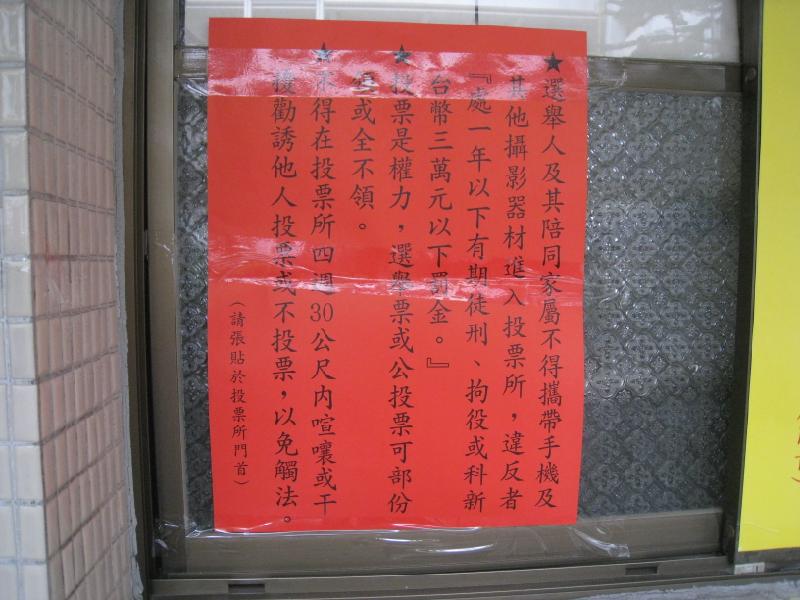 ★選舉人及其陪同家屬不得攜帶手機及
其他攝影器材進入投票所，違反者
『處一年以下有期徒刑、拘役或科新
台幣三萬元以下罰金。』
★投票是權力，選舉票或公投票可部份
領或全不領。
★不得在投票所四週30公尺內喧嚷或干
擾勸誘他人投票或不投票，以免觸法。
（請張貼於投票所門首）